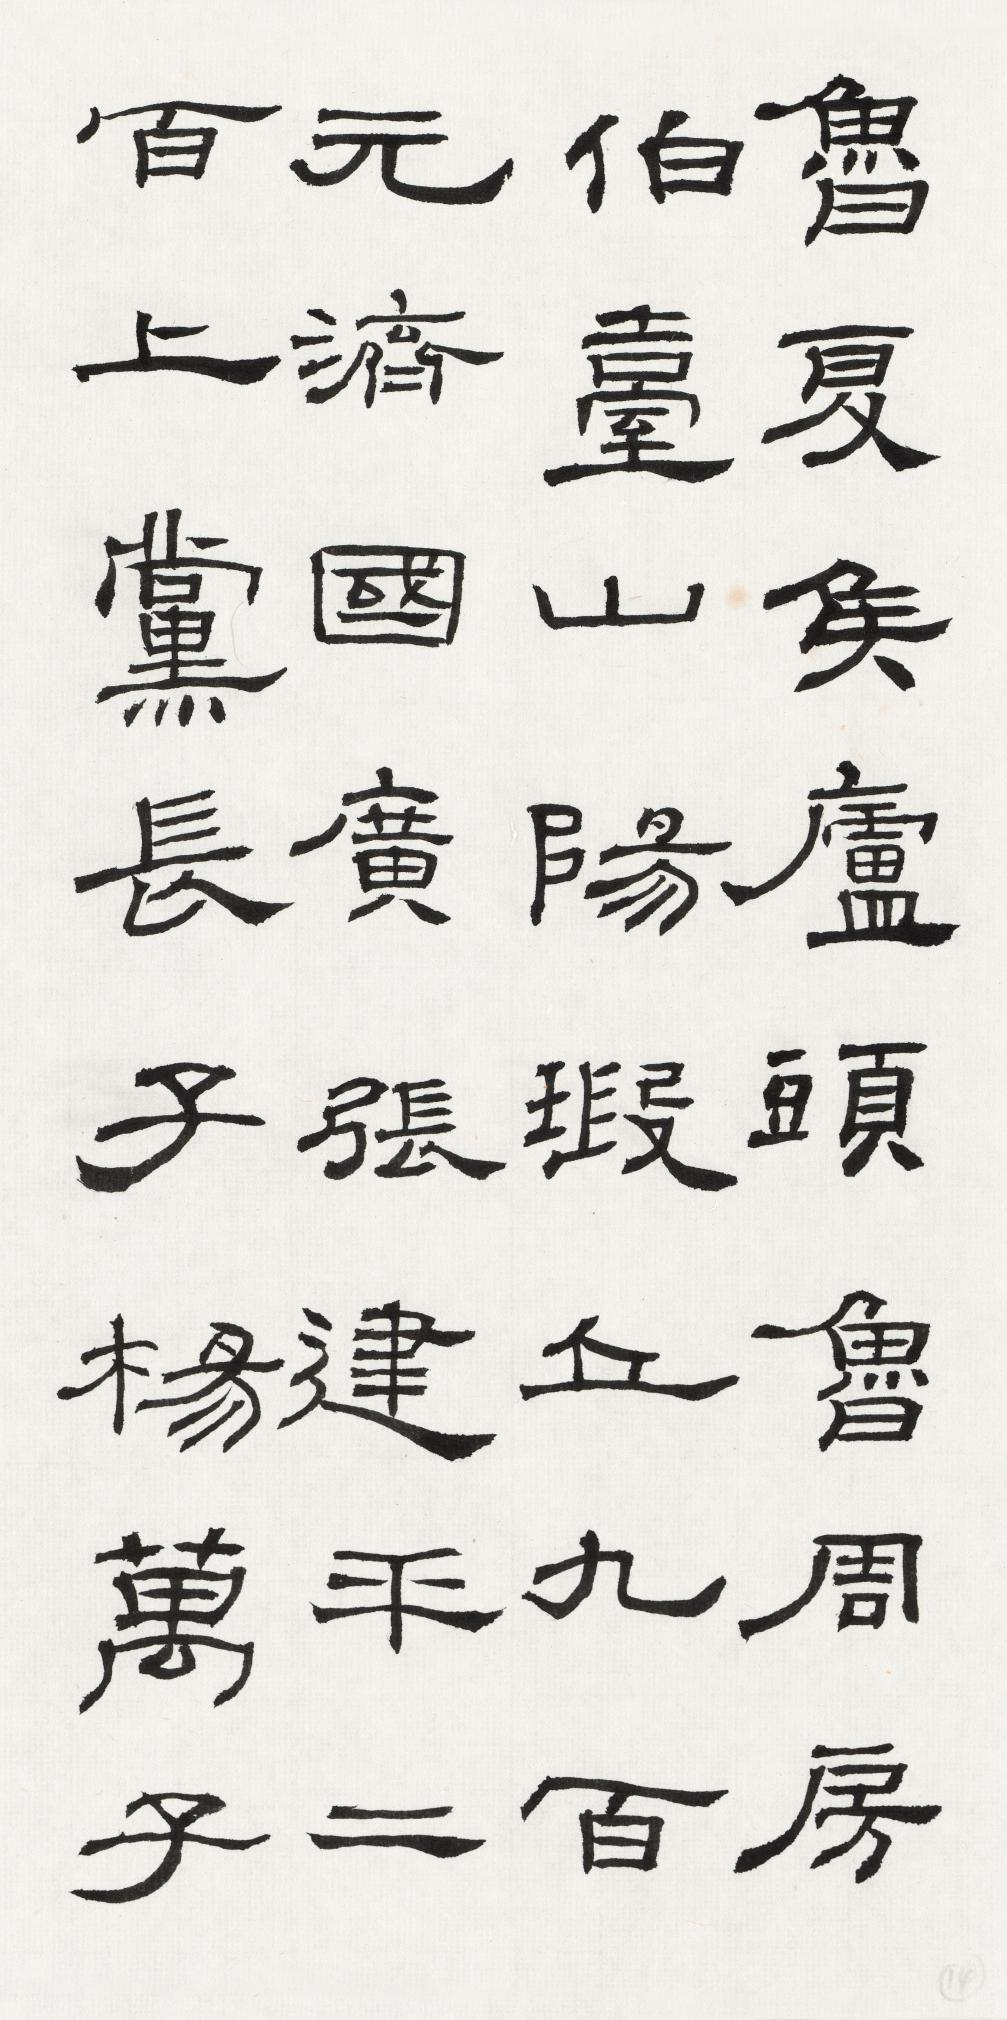 魯夏侯廬頭魯周房
伯臺山陽瑕丘九百
元濟國廣張建平二
百上黨長子楊萬子
14